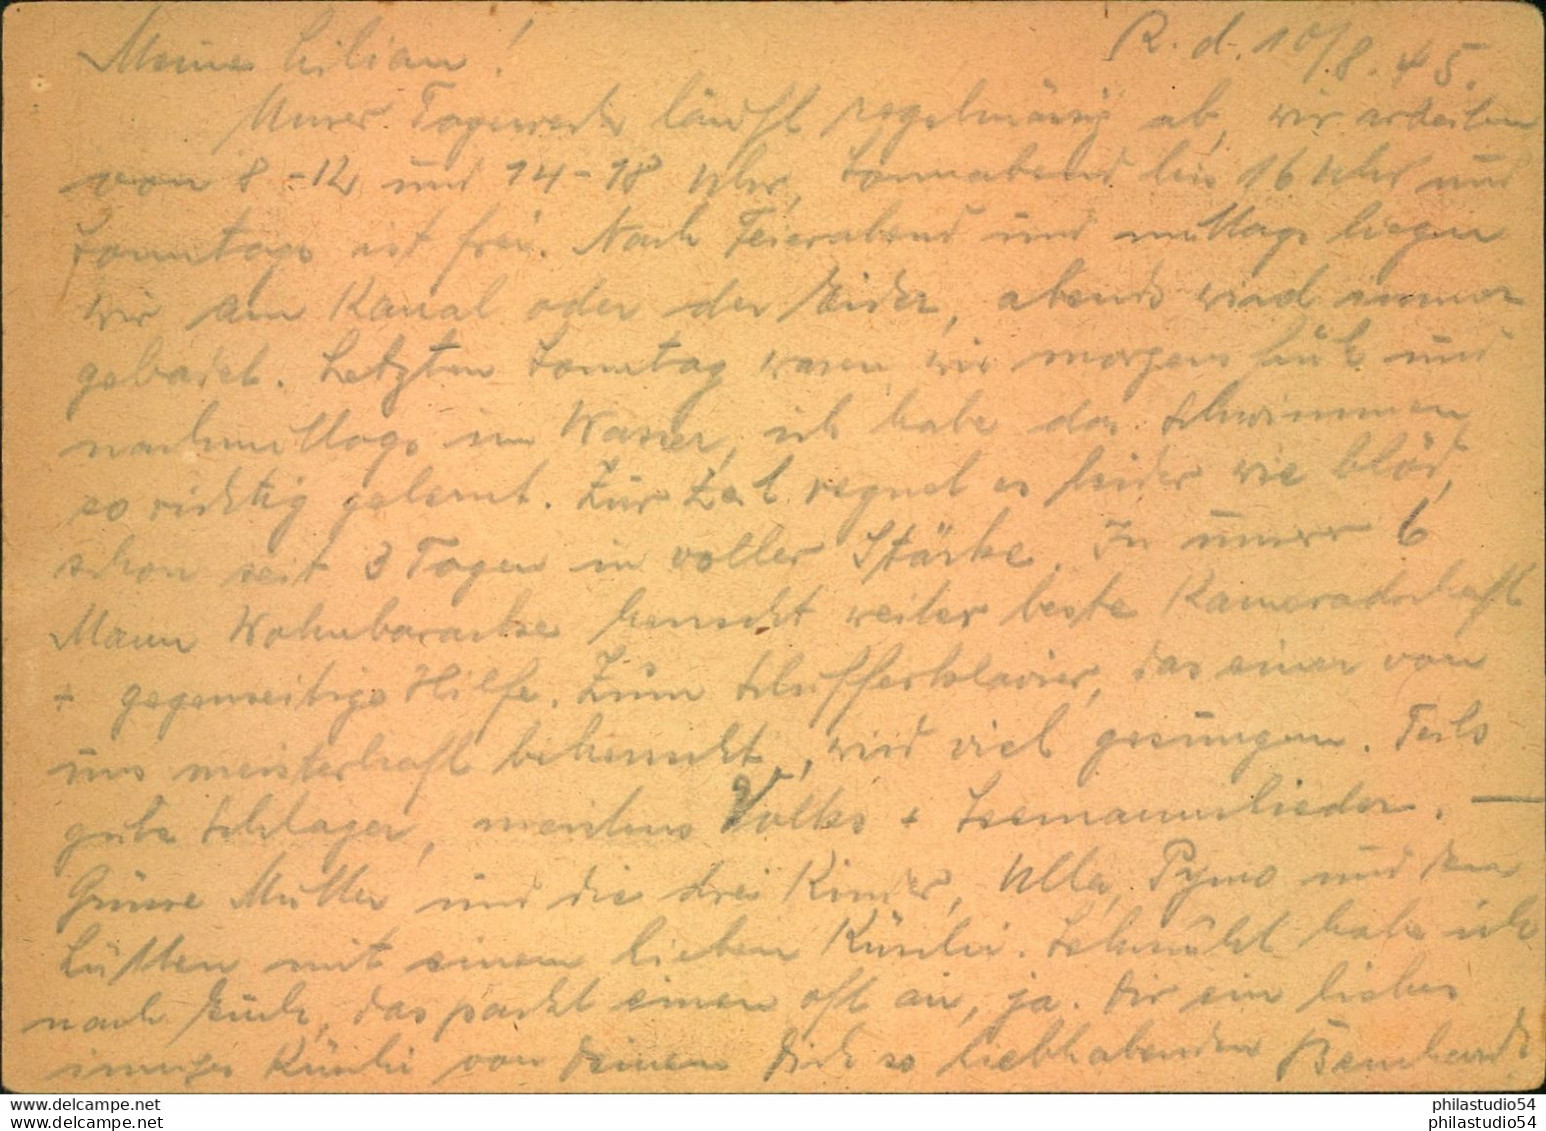 R. d. 10/8. 45.
Meine Lilian!
Unser Tagewerk läuft regelmässig ab, wir arbeiten
von 8-12 und 14-18 Uhr, Sonnabend bis 16 Uhr und
Sonntags ist frei. Nach Feierabend und mittags liegen
wir am Kanal oder der Eider, abends wird immer
gebadet. Letzten Sonntag waren wir morgens früh und
nachmittags im Wasser, ich habe das Schwimmen
so richtig gelernt. Zur Zeit regnet es leider wie blöd,
schon seit 3 Tagen in voller Stärke. In unserer 6
Mann Wohnbaracke herrscht weiter beste Kameradschaft
+ gegenseitige Hilfe. Zum Schifferklavier, das einer von
uns meisterhaft beherrscht, wird viel gesungen. Teils
gute Schlager, meistens Volks + Seemannslieder. —
Grüsse Mutter und die drei Kinder, Ulla, und den
Lütten mit einem lieben Küssli. Sehnsucht habe ich
nach Euch, das packt einen oft an, ja. Dir ein liebes
inniges Küssli von Deinem Dich so liebhabenden Bernhard
www.delcampe.net
www.delcampe.net
philastudio54
philastudio54